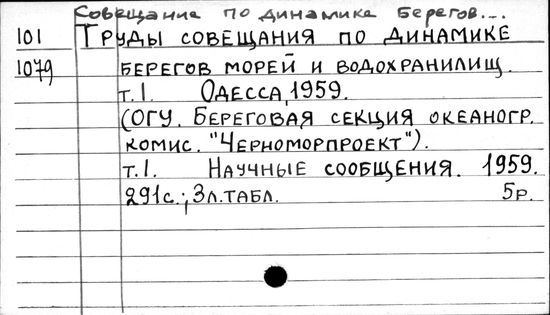 Совещание по динамике берегов...
101 Труды совещания по динамике
1079 берегов морей и водохранилищ.
т.1. Одесса, 1959.
(ОГУ. Береговая секция океаногр.
комис. "Черноморпроект").
т.1. Научные сообщения. 1959.
291с.; 3л.табл. 5р.